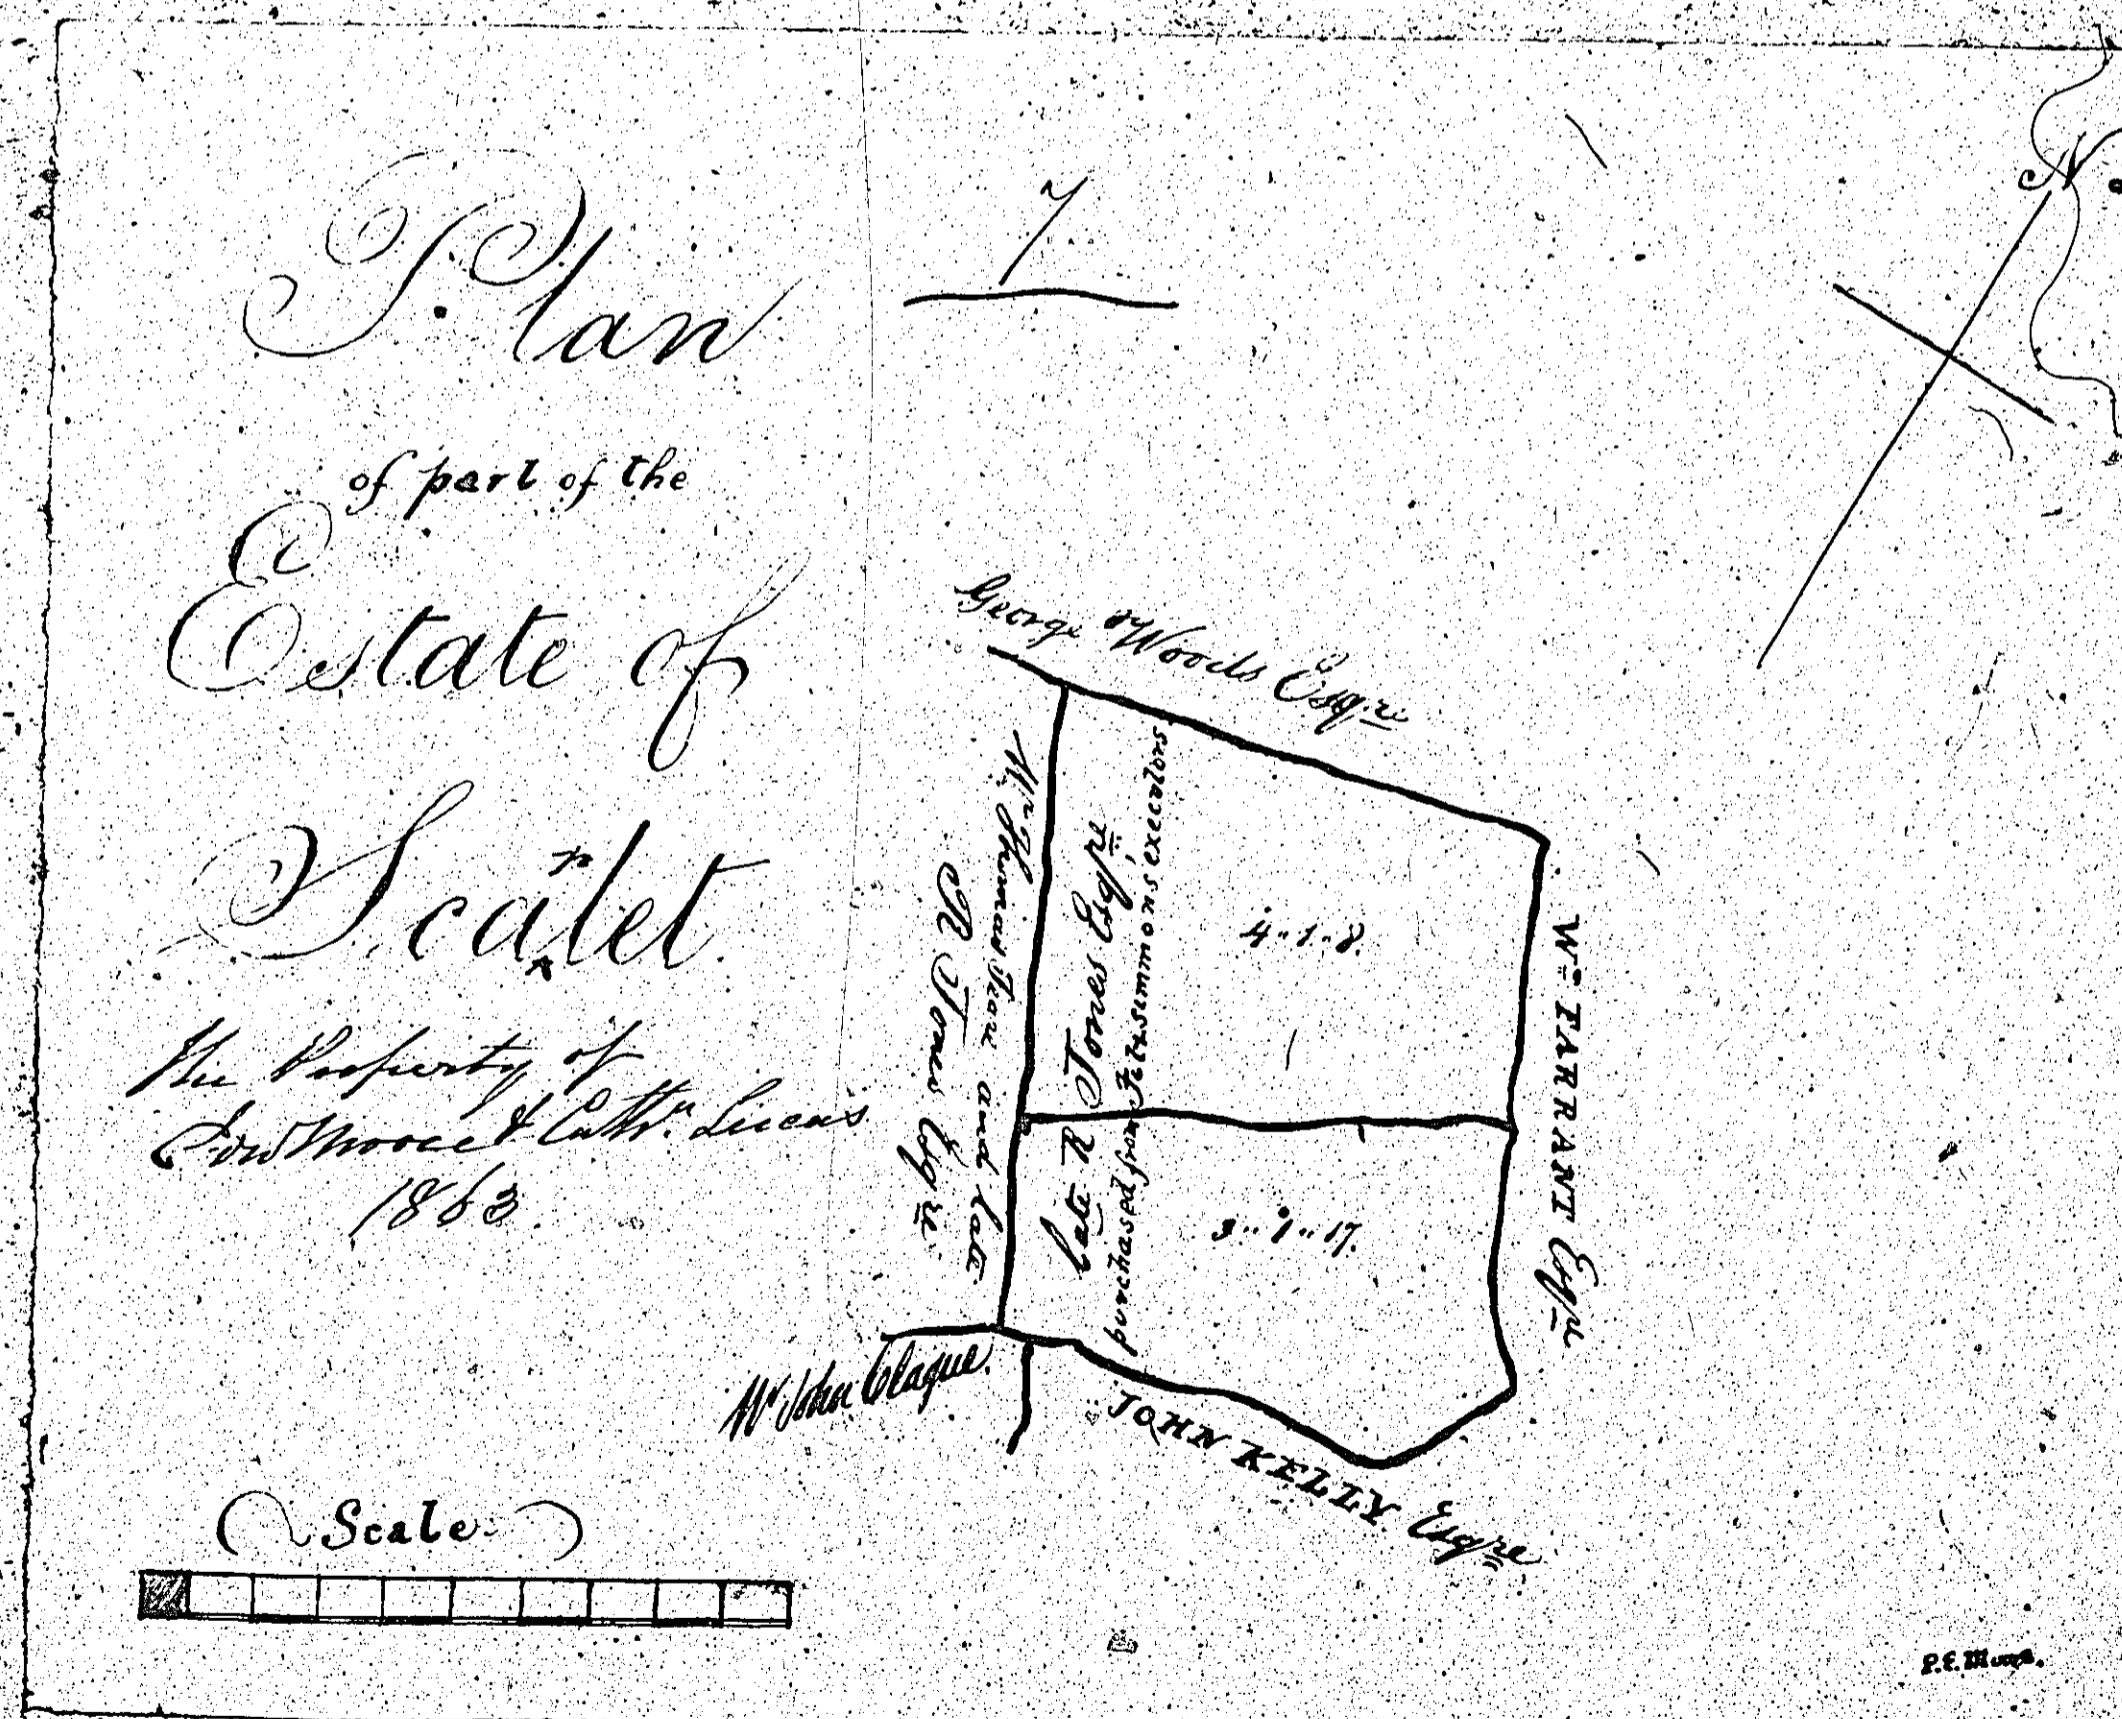 Plan
7
of part of the
Estate of
Scarlet
The Property of
Edwd Moore & Cathr. Lucas
1863.
N.
George Woods Esqre
Mr Thomas and late
R Jones Esqre
Late R Jones Esqre
purchased from Fitzsimmons executors
4.. 1.. 8.
3.. 1.. 17.
Wm FARRANT Esqre
Mr John Clague.
JOHN KELLY Esqre
Scale
P.E.